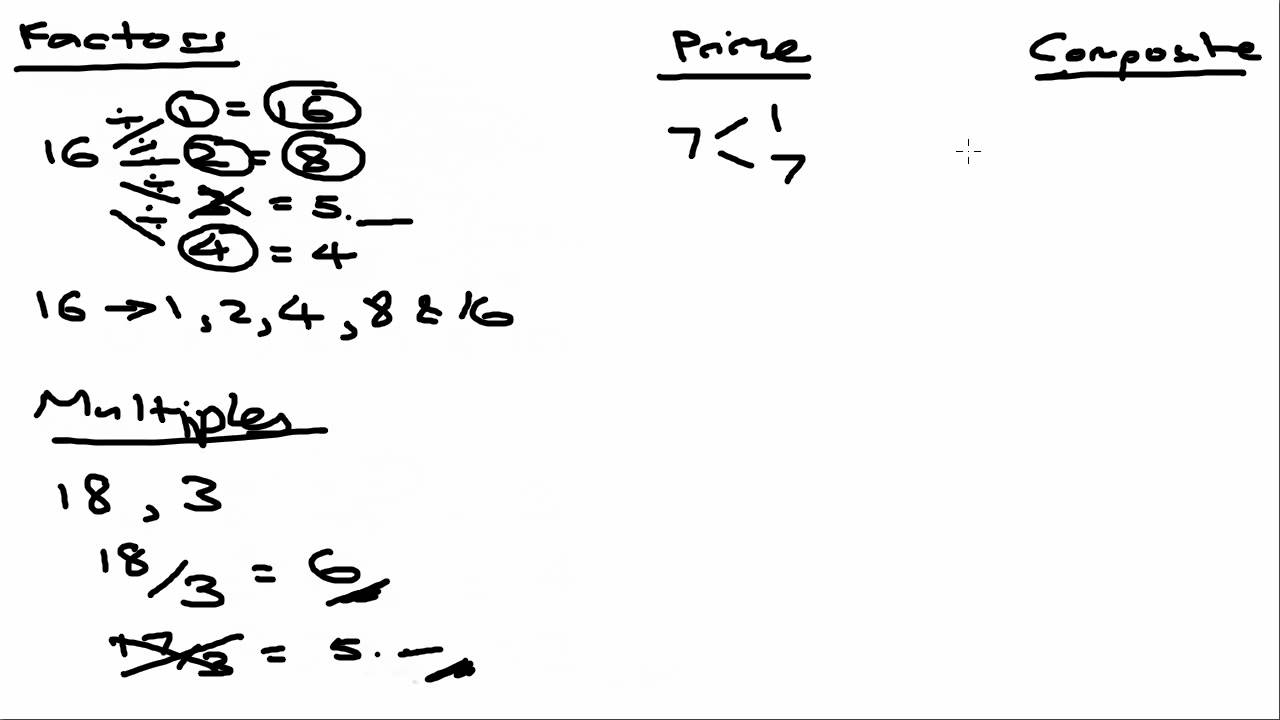 Factors
÷ 1 = 16
16 ÷ 2 = 8
÷ 3 = 5.
÷ 4 = 4
16 → 1, 2, 4, 8 & 16
Multiples
18, 3
18/3 = 6
17/3 = 5.
Prime
7 < 1
7
Composite